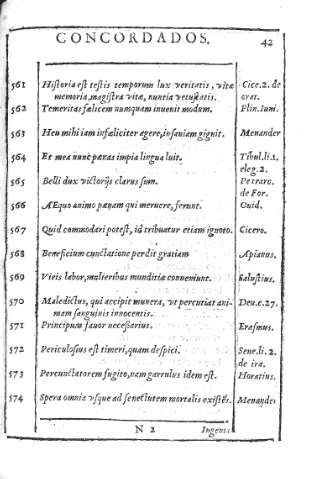 CONCORDADOS. 42
561 Historia est testis temporum lux veritatis, vitæ Cice.2. de
memoria, magistra vitæ, nuntia vetustatis. orat.
562 Temeritas fælicem numquam invenit modum. Plin. Iuni.
563 Heu mihi iam infæliciter agere, insaniam gignit. Menander
564 Et mea nunc pænas impia lingua luit. Tibul.li.1.
eleg.2.
565 Belli dux victorijs clarus sum. Petrarc.
de For.
566 AEquo animo pænam qui meruere, ferunt. Ouid.
567 Quid commodari potest, id tribuatur etiam ignoto. Cicero.
568 Beneficium cunctatione perdit gratiam Apianus.
569 Viris labor, mulieribus munditiæ conueniunt. Salustius.
570 Maledictus, qui accipit munera, vt percutiat ani- Deu.c.27.
mam sanguinis innocentis.
571 Principum fauor necessarius. Erasmus.
572 Periculosius est timeri, quam despici. Sene.li.2.
de ira.
573 Percunctatorem fugito, nam garrulus idem est. Horatius.
574 Spera omnia vsque ad senectutem mortalis existẽs. Menander
N 2 Ingenia